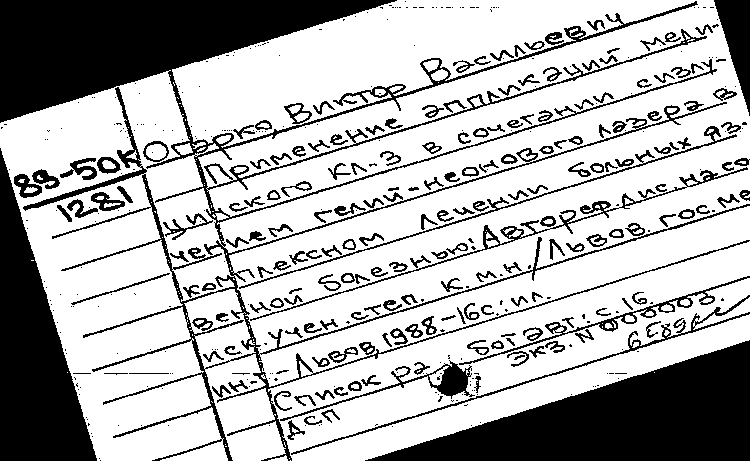 Огарко, Виктор Васильевич
Применение аппликаций меди-
цинского Кл-3 в сочетании с излу-
89-50к
1281
чением гелий-неонового лазера в
комплексном лечении больных яз-
венной болезнью: Автореф. дис. на со
иск. учен. степ. к.м.н. / Львов. гос. ме
ин-т. - Львов, 1988. - 16с.: ил.
Список ра бот авт.: с. 16.
ДСП Экз. N 000003.